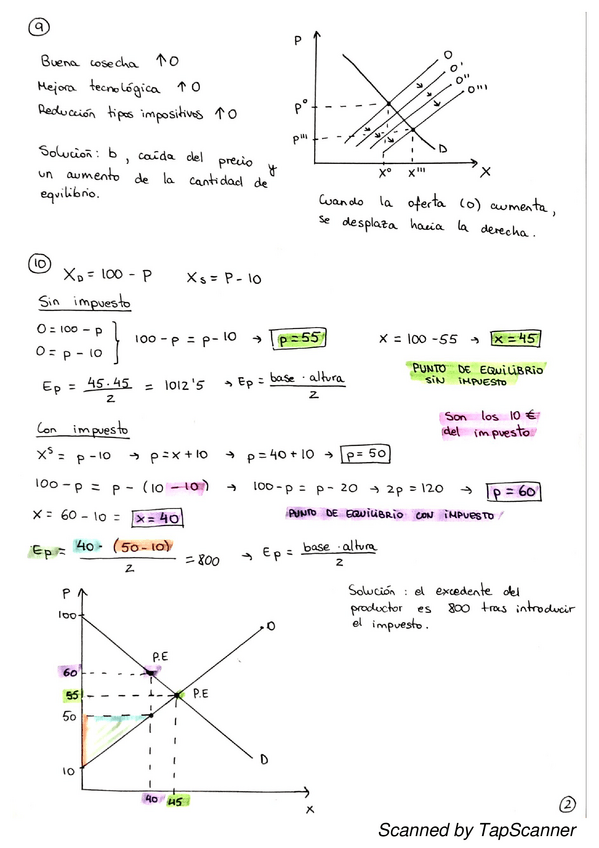 9
Buena cosecha ↑O
Mejora tecnológica ↑O
Reducción tipos impositivos ↑O
Solución: b, caída del precio y
un aumento de la cantidad de
equilibrio.
P
O
O'
O''
O'''
P⁰
P'''
D
X⁰ X''' X
Cuando la oferta (O) aumenta,
se desplaza hacia la derecha.
10
X_D = 100 - P X_S = P - 10
Sin impuesto
O = 100 - p
O = p - 10
100 - p = p - 10 → p = 55
X = 100 - 55 → x = 45
PUNTO DE EQUILIBRIO
SIN IMPUESTO
Ep = 45·45 / 2 = 1012'5 → Ep = base · altura / 2
Son los 10 €
del impuesto
Con impuesto
X^S = p - 10 → p = x + 10 → p = 40 + 10 → p = 50
100 - p = p - (10 - 10) → 100 - p = p - 20 → 2p = 120 → p = 60
X = 60 - 10 = x = 40
PUNTO DE EQUILIBRIO CON IMPUESTO
Ep = 40 · (50 - 10) / 2 = 800 → Ep = base · altura / 2
Solución: el excedente del
productor es 800 tras introducir
el impuesto.
P
100
O
P.E
60
55
P.E
50
D
10
40 45
X
2
Scanned by TapScanner